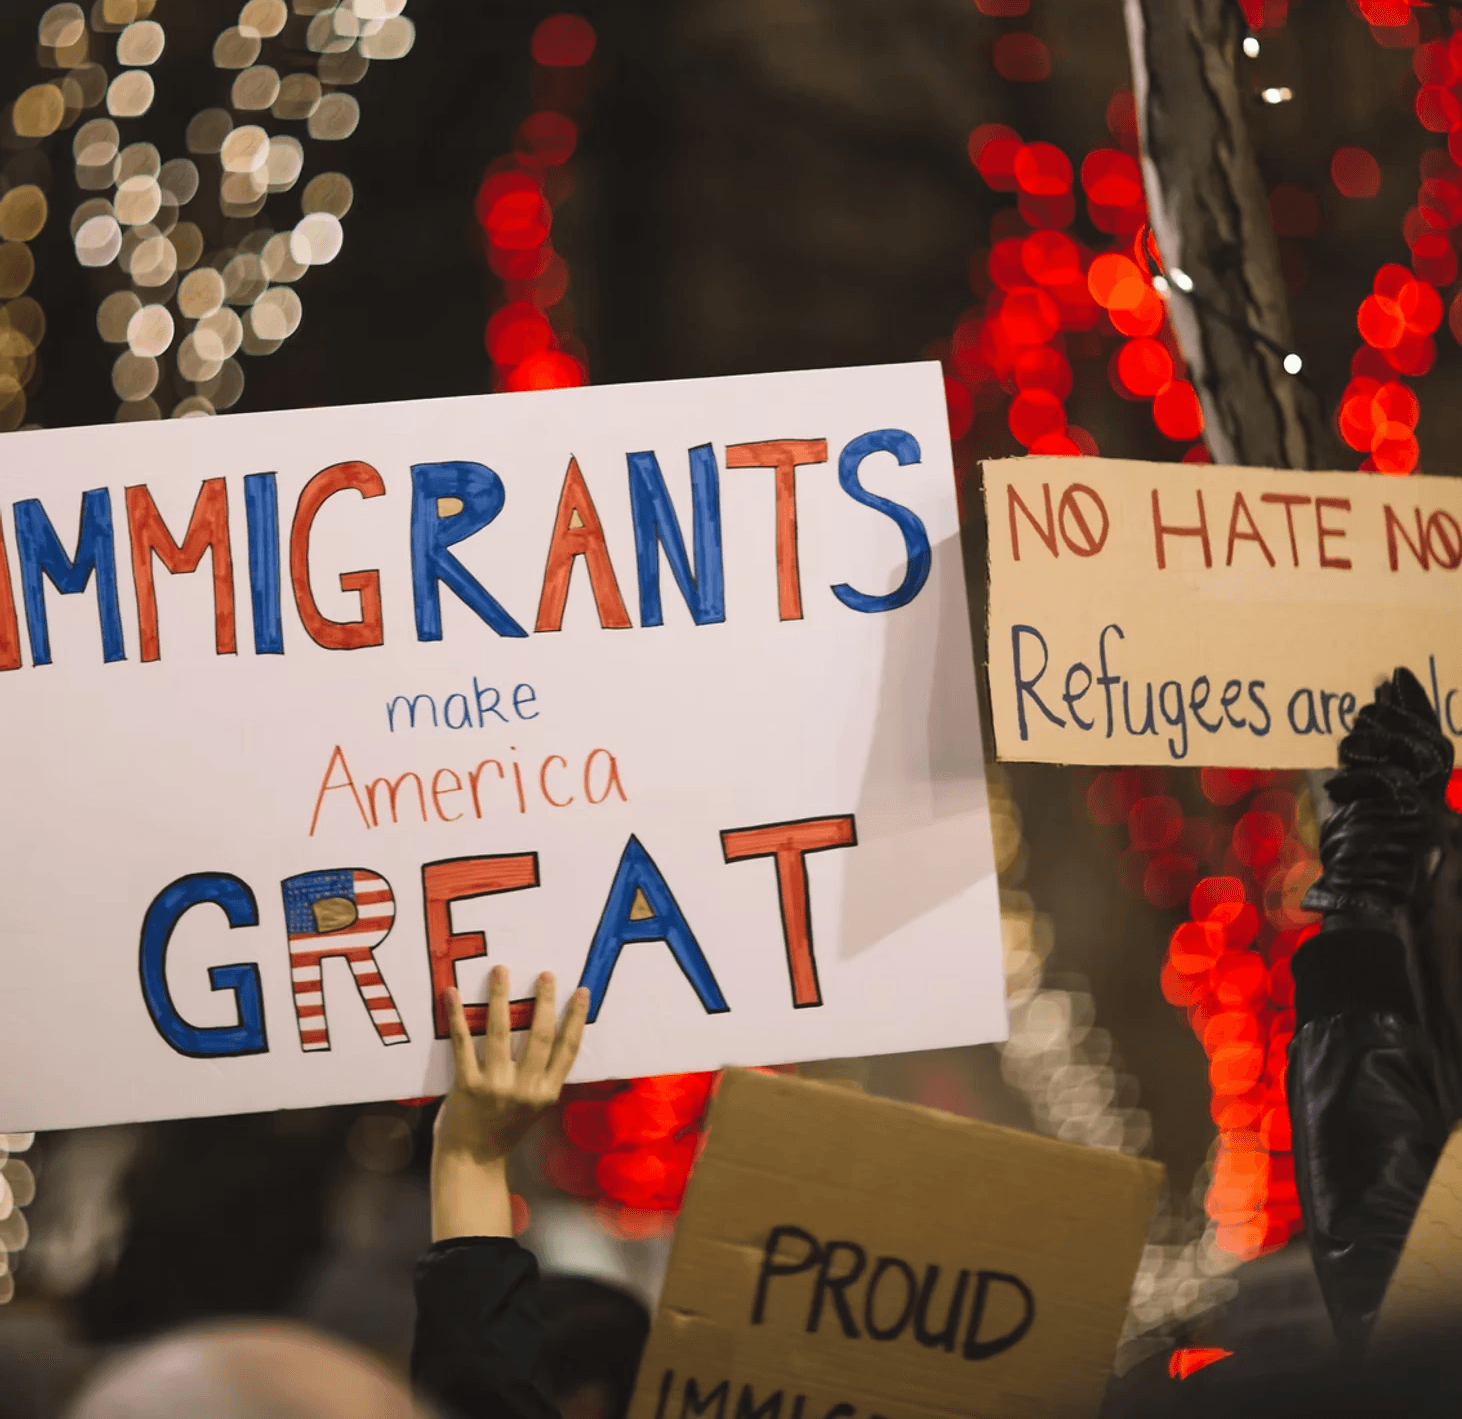 IMMIGRANTS
make
America
GREAT
NO HATE NO
Refugees are
PROUD